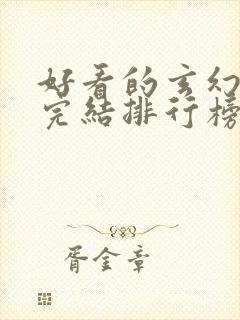 好看的玄幻
完結排行榜
胥金章